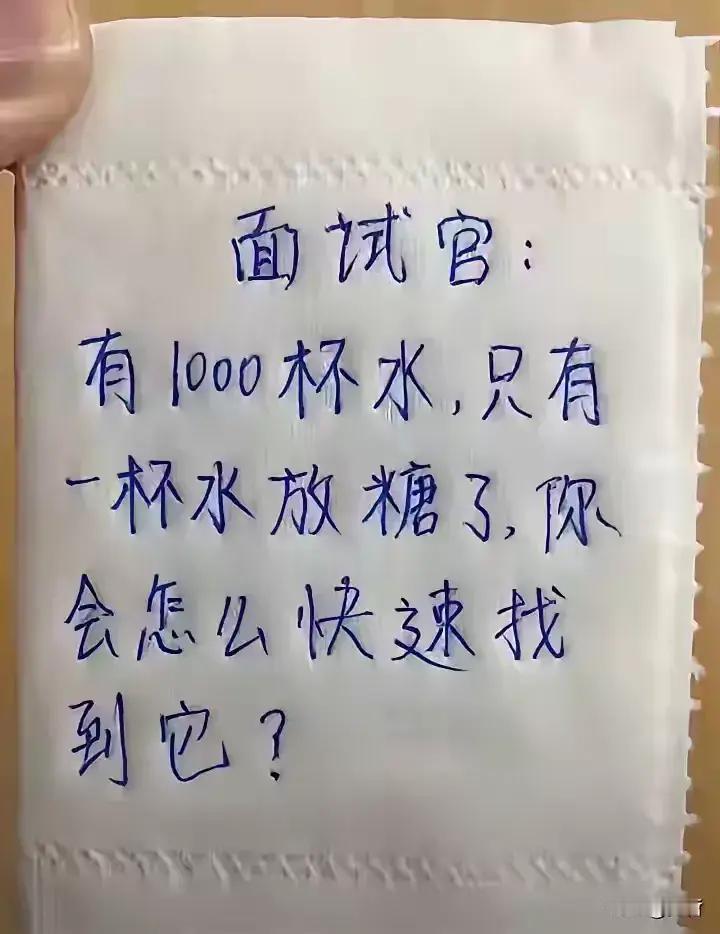 面试官：
有1000杯水，只有
一杯水放糖了，你
会怎么快速找
到它？